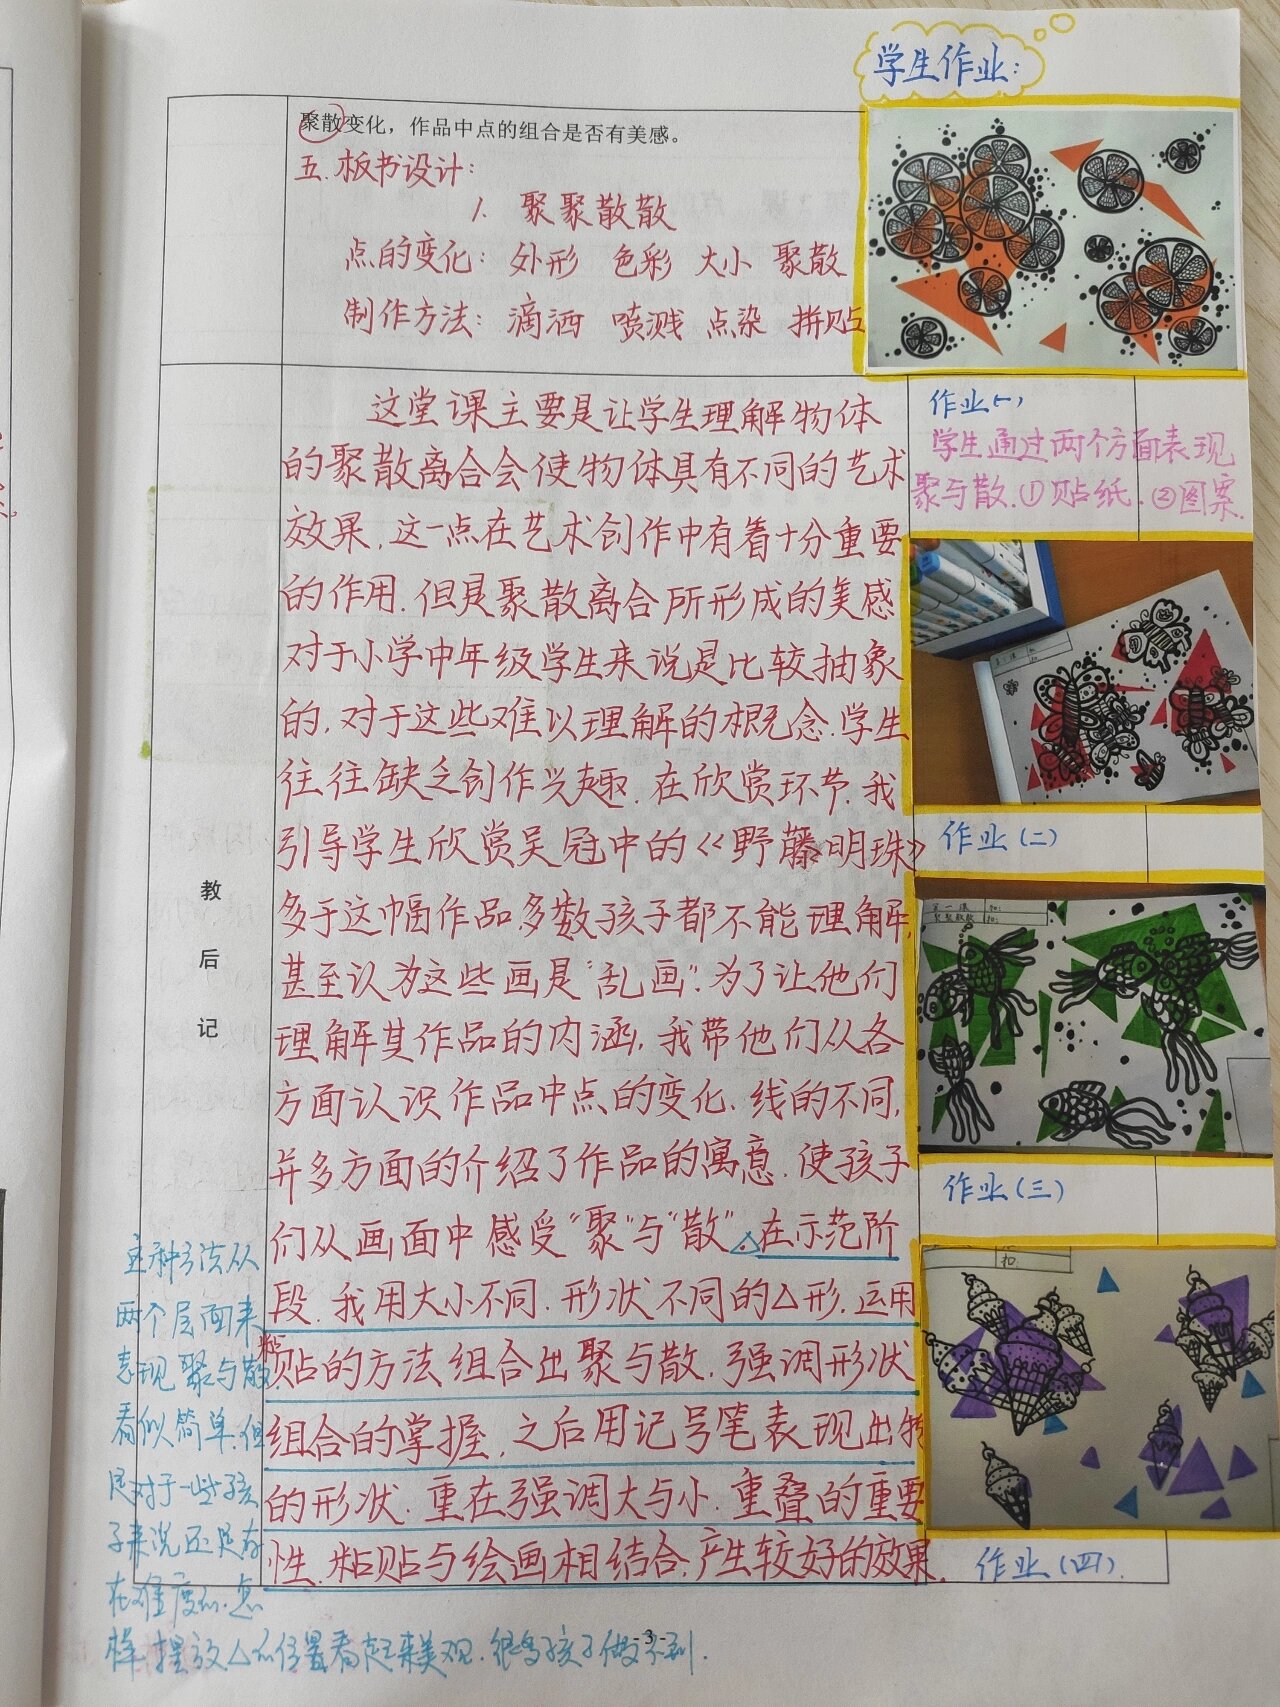 学生作业：
聚散变化，作品中点的组合是否有美感。
五.板书设计：
1. 聚聚散散
点的变化：外形 色彩 大小 聚散
制作方法：滴洒 喷溅 点染 拼贴
教后记
这堂课主要是让学生理解物体
的聚散离合会使物体具有不同的艺术
效果,这一点在艺术创作中有着十分重要
的作用.但是聚散离合所形成的美感
对于小学中年级学生来说是比较抽象
的,对于这些难以理解的概念.学生
往往缺乏创作兴趣.在欣赏环节.我
引导学生欣赏吴冠中的《野藤明珠》
多于这幅作品.多数孩子都不能理解,
甚至认为这些画是“乱画”.为了让他们
理解其作品的内涵,我带他们从各
方面认识作品中点的变化.线的不同,
并多方面的介绍了作品的寓意.使孩子
们从画面中感受“聚”与“散”.在示范阶
段.我用大小不同.形状不同的△形.运用
粘贴的方法组合出聚与散.强调形状
组合的掌握.之后用记号笔表现出物
的形状.重在强调大与小.重叠的重要
性.粘贴与绘画相结合.产生较好的效果.
作业(一)
学生通过两个方面表现
聚与散.①贴纸.②图案.
作业(二)
第一课
聚聚散散
作业(三)
作业(四).
这种方法从
两个层面来
表现聚与散.
看似简单.但
是对于一些孩
子来说还是存
在难度的.怎
样摆放△的位置看起来美观.很多孩子做不到.
- 3 -